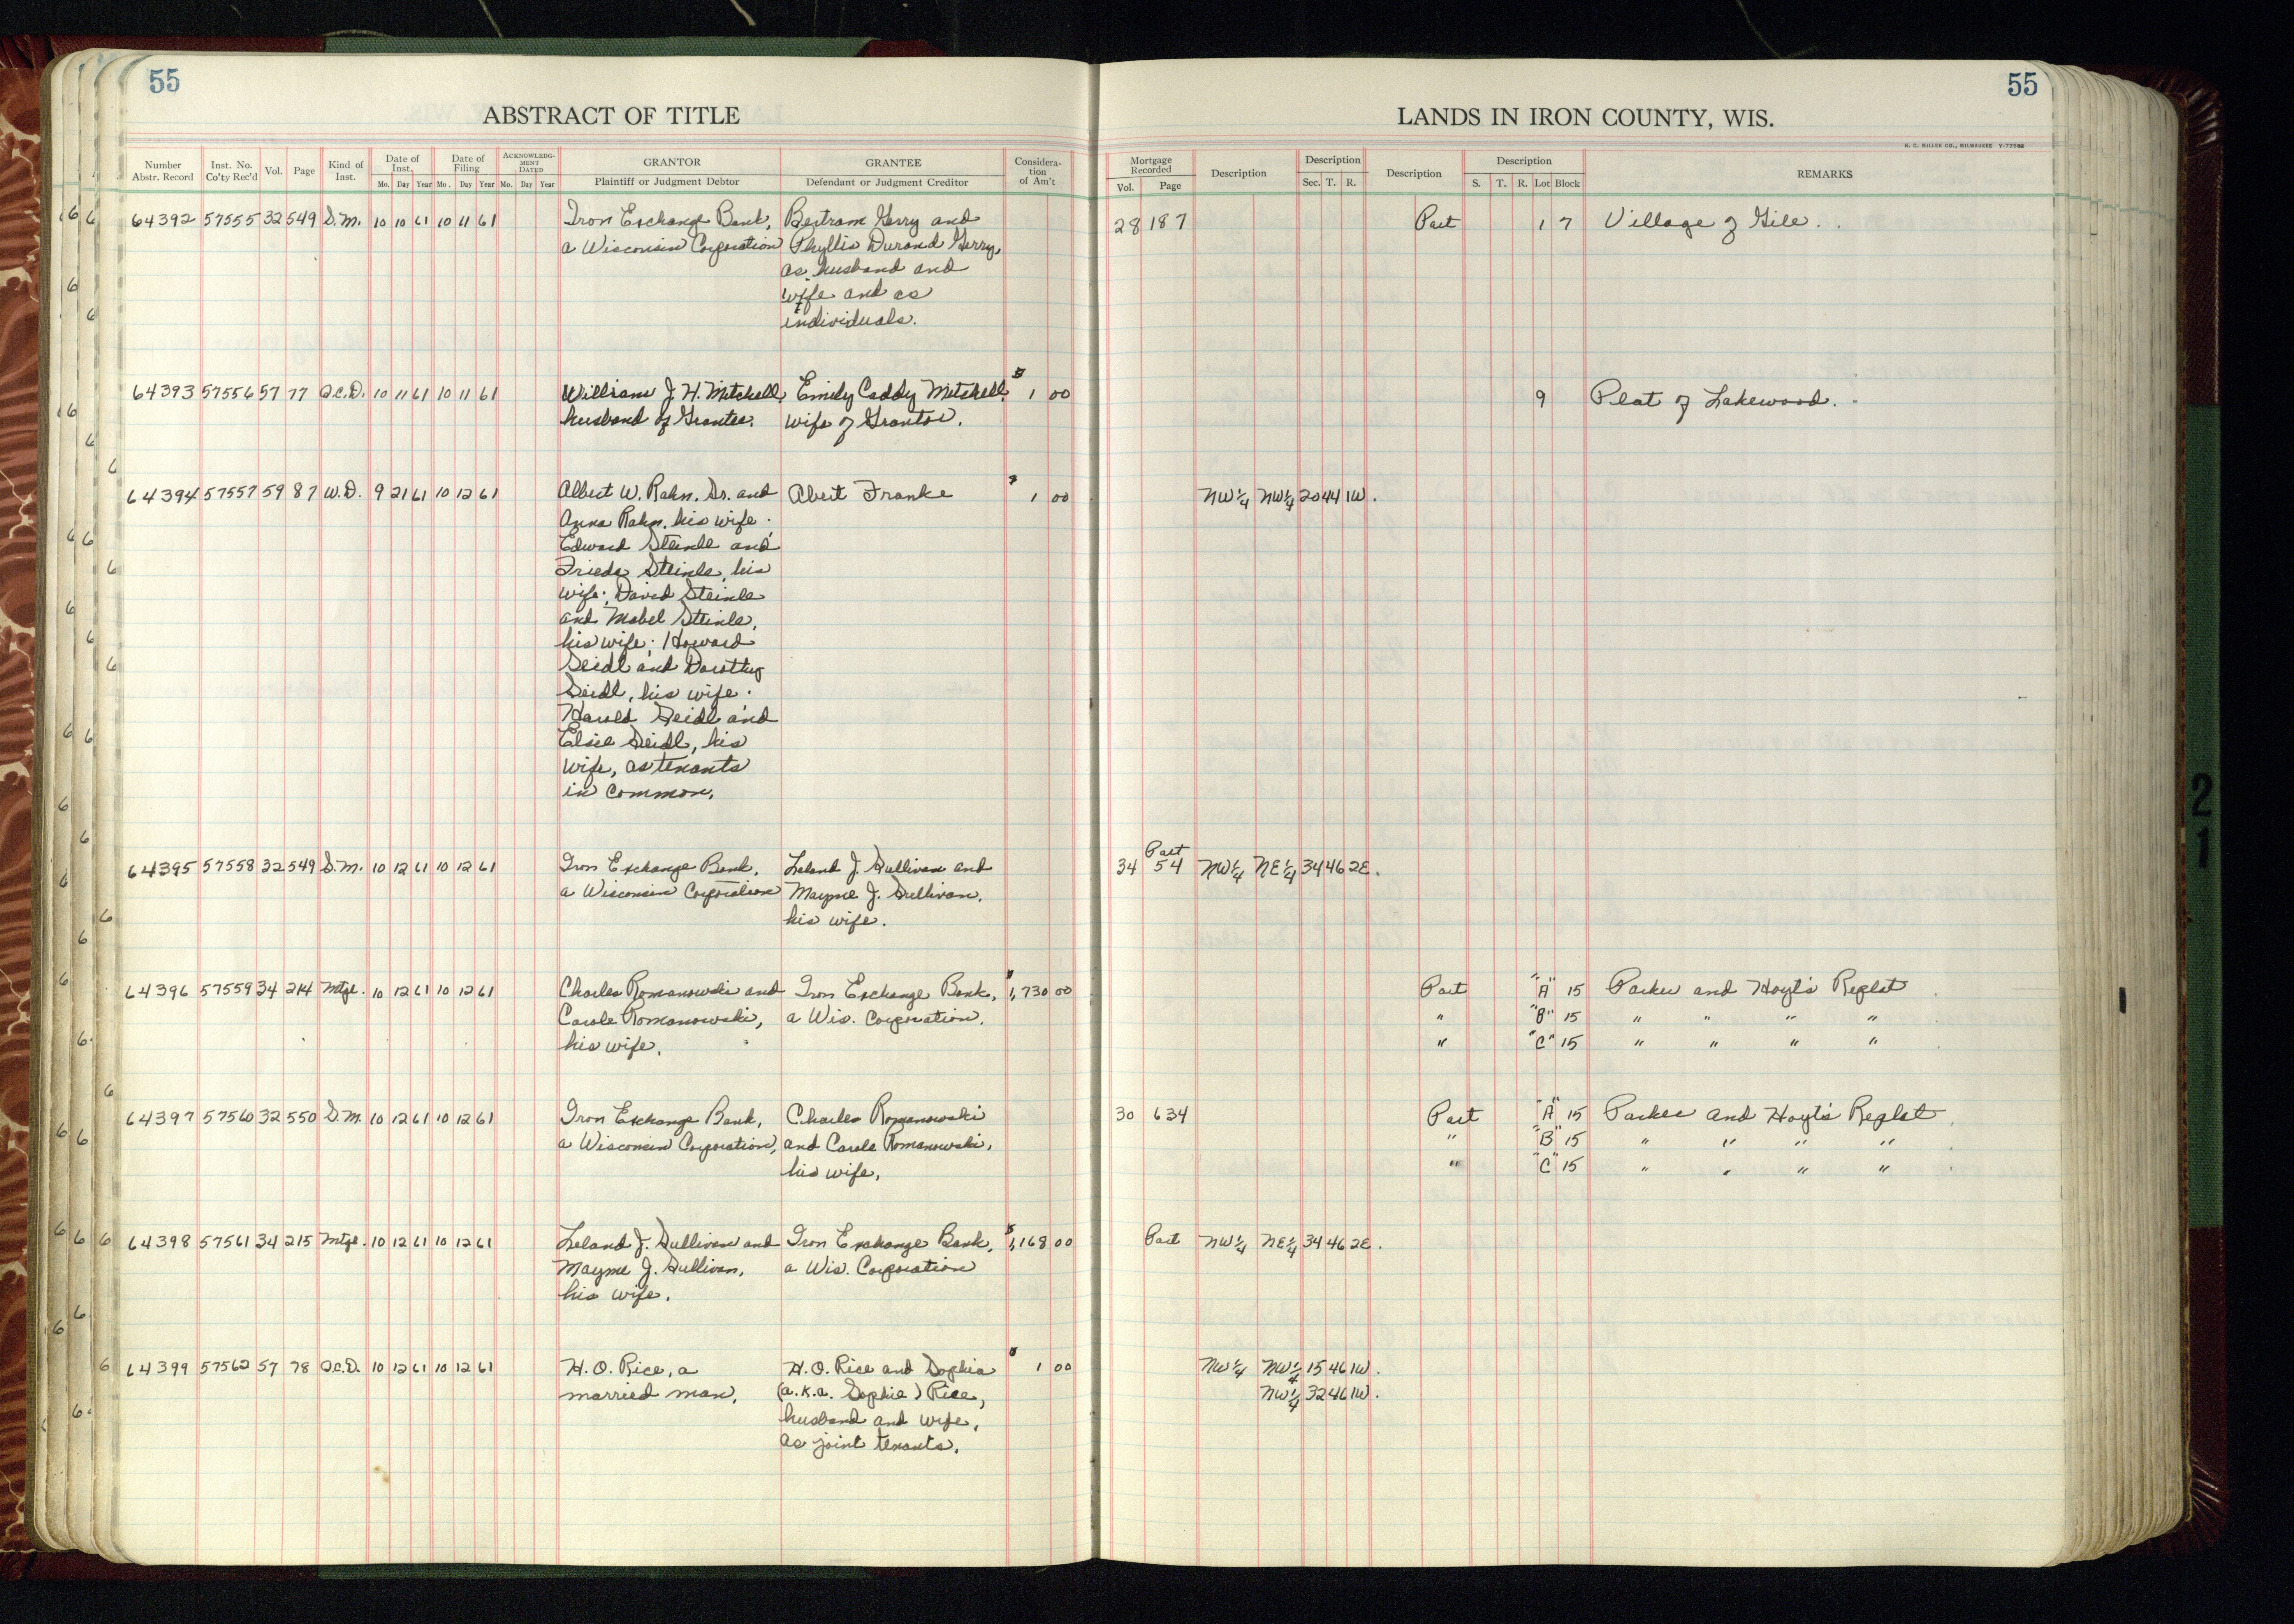 55
55
ABSTRACT OF TITLE
LANDS IN IRON COUNTY, WIS.
H. C. MILLER CO., MILWAUKEE
Number Abstr. Record | Inst. No. Co'ty Rec'd | Vol. | Page | Kind of Inst. | Date of Inst. Mo. Day Year | Date of Filing Mo. Day Year | ACKNOWLEDGMENT DATED Mo. Day Year | GRANTOR Plaintiff or Judgment Debtor | GRANTEE Defendant or Judgment Creditor | Consideration of Am't | Mortgage Recorded Vol. Page | Description | Description Sec. T. R. | Description | Description S. T. R. Lot Block | REMARKS
64392 57555 32 549 S.M. 10 10 61 10 11 61 Iron Exchange Bank, Bertram Gerry and 28 187 Part 1 7 Village of Gile.
a Wisconsin Corporation Phyllis Durand Gerry,
as husband and
wife and as
individuals.
64393 57556 57 77 Q.C.D. 10 11 61 10 11 61 William J. H. Mitchell, Emily Caddy Mitchell, $ 1 00 9 Plat of Lakewood.
husband of Grantee. wife of Grantor.
64394 57557 59 87 W.D. 9 21 61 10 12 61 Albert W. Rahn, Sr. and Abert Franke $ 1 00 NW¼ NW¼ 20 44 1W.
Anna Rahn, his wife;
Edward Steinle and
Frieda Steinle, his
wife; David Steinle
and Mabel Steinle,
his wife; Howard
Seidl and Dorothy
Seidl, his wife;
Harold Seidl and
Elsie Seidl, his
wife, as tenants
in common.
64395 57558 32 549 S.M. 10 12 61 10 12 61 Iron Exchange Bank, Leland J. Sullivan and 34 54 Part NW¼ NE¼ 34 46 2E.
a Wisconsin Corporation Mayme J. Sullivan,
his wife.
64396 57559 34 214 Mtge. 10 12 61 10 12 61 Charles Romanowski and Iron Exchange Bank, $1,730 00 Part "A" 15 Parker and Hoyt's Replat
Carole Romanowski, a Wis. Corporation. " "B" 15 " " " "
his wife. " "C" 15 " " " "
64397 57560 32 550 S.M. 10 12 61 10 12 61 Iron Exchange Bank, Charles Romanowski 30 634 Part "A" 15 Parker and Hoyt's Replat.
a Wisconsin Corporation, and Carole Romanowski, " "B" 15 " " " "
his wife. " "C" 15 " " " "
64398 57561 34 215 Mtge. 10 12 61 10 12 61 Leland J. Sullivan and Iron Exchange Bank, $1,168 00 Part NW¼ NE¼ 34 46 2E.
Mayme J. Sullivan, a Wis. Corporation
his wife.
64399 57562 57 78 Q.C.D. 10 12 61 10 12 61 H. O. Rice, a H. O. Rice and Sophia $ 1 00 NW¼ NW¼ 15 46 1W.
married man. (a.k.a. Sophie) Rice, NW¼ 32 46 1W.
husband and wife,
as joint tenants.
2
1